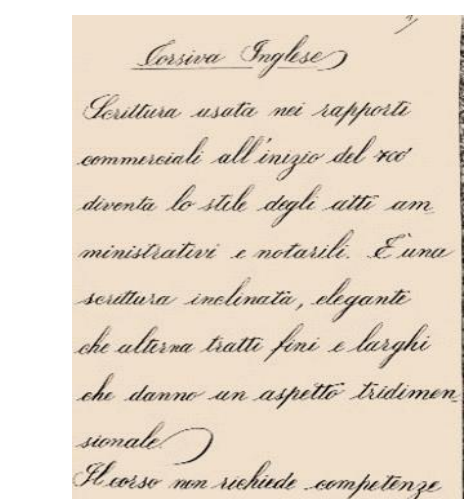 Corsiva Inglese
Scrittura usata nei rapporti
commerciali all'inizio del 700
diventa lo stile degli atti am
ministrativi e notarili. È una
scrittura inclinata, elegante
che alterna tratti fini e larghi
che danno un aspetto tridimen
sionale
Il corso non richiede competenze